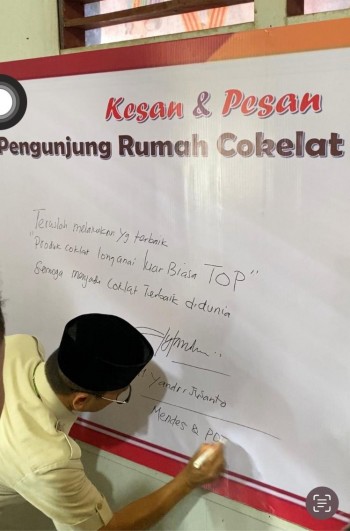 Kesan & Pesan
Pengunjung Rumah Cokelat
Teruslah melakukan yg terbaik
"Produk coklat longanai luar Biasa TOP"
Semoga menjadi coklat Terbaik didunia
Yandri Susanto
Mendes & PDT